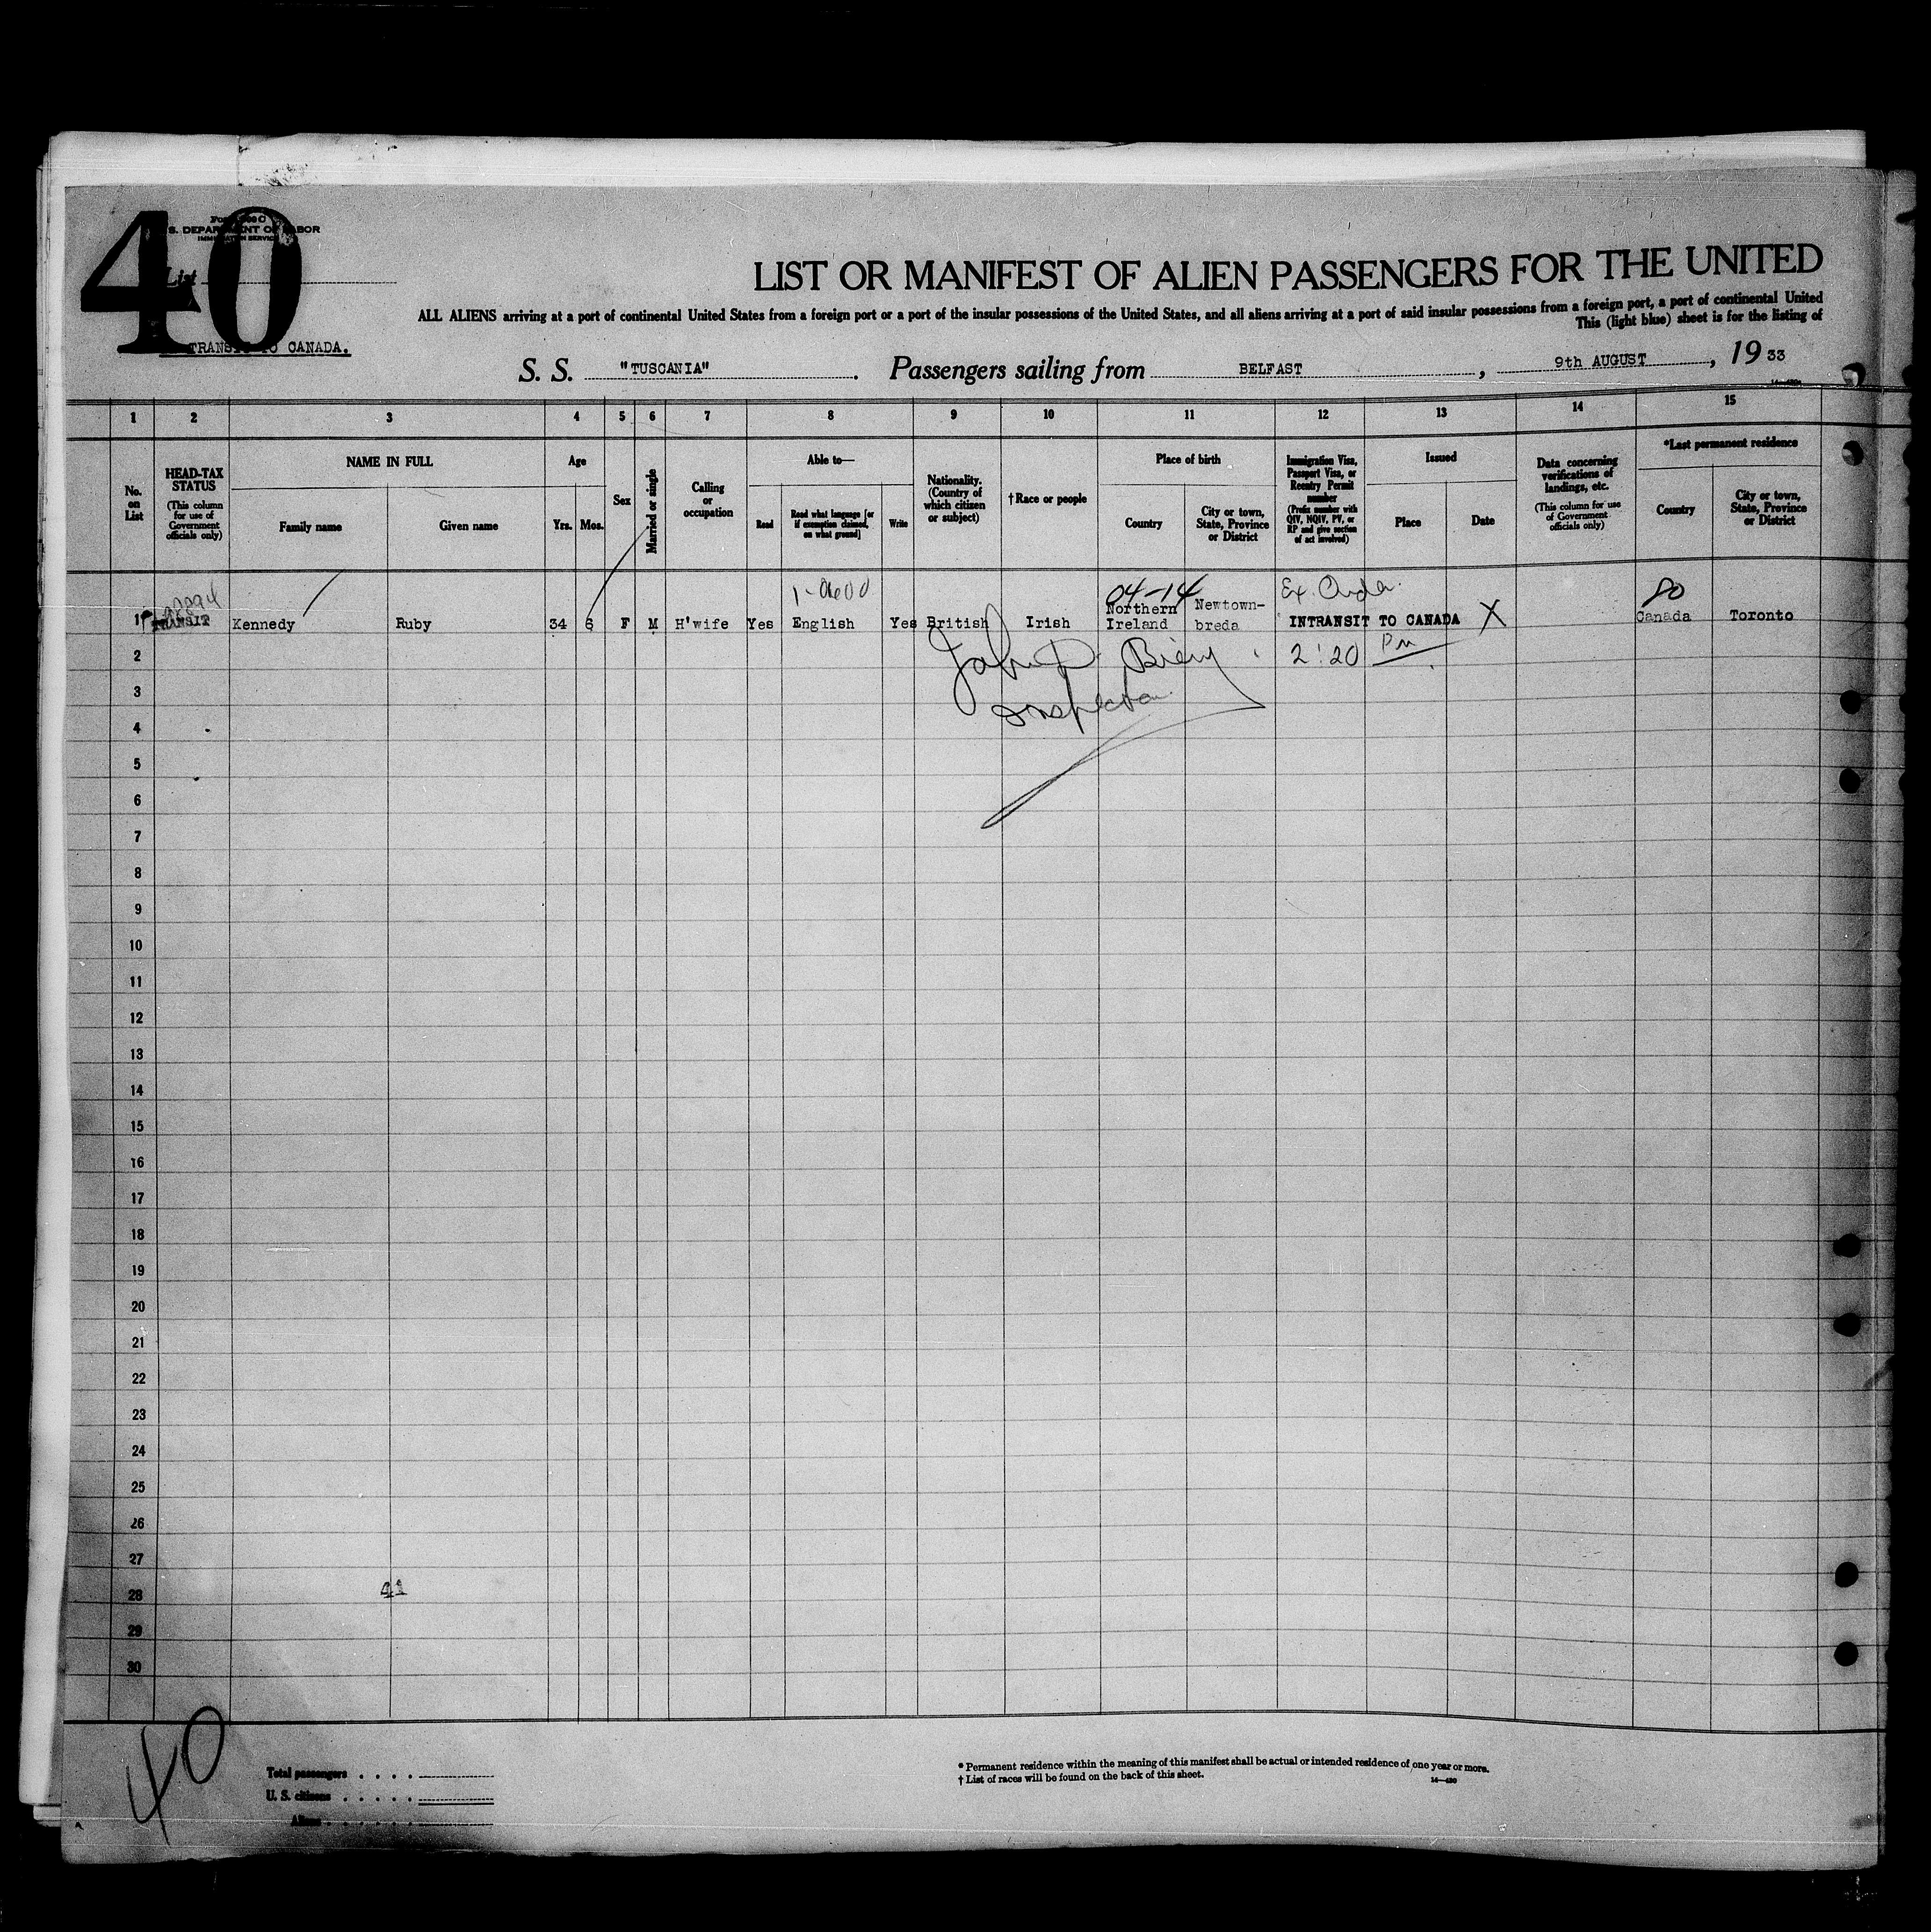 40
U. S. DEPARTMENT OF LABOR
IMMIGRATION SERVICE
List
TRANSIT TO CANADA.
LIST OR MANIFEST OF ALIEN PASSENGERS FOR THE UNITED
ALL ALIENS arriving at a port of continental United States from a foreign port or a port of the insular possessions of the United States, and all aliens arriving at a port of said insular possessions from a foreign port, a port of continental United
This (light blue) sheet is for the listing of
S. S. "TUSCANIA". Passengers sailing from BELFAST, 9th AUGUST, 19 33
1 2 3 4 5 6 7 8 9 10 11 12 13 14 15
No. on List
HEAD-TAX STATUS (This column for use of Government officials only)
NAME IN FULL
Family name Given name
Age
Yrs. Mos.
Sex
Married or single
Calling or occupation
Able to—
Read Read what language [or if exemption claimed, on what ground] Write
Nationality. (Country of which citizen or subject)
†Race or people
Place of birth
Country City or town, State, Province or District
Immigration Visa, Passport Visa, or Reentry Permit number (Prefix number with QIV, NQIV, PV, or RP and give section of act involved)
Issued
Place Date
Data concerning verifications of landings, etc. (This column for use of Government officials only)
*Last permanent residence
Country City or town, State, Province or District
04-14 Ex. 80
1 TRANSIT Kennedy Ruby 34 6 F M H'wife Yes English Yes British Irish Northern Ireland Newtown-breda INTRANSIT TO CANADA X Canada Toronto
2 John 2:20 PM
3 Inspector
4
5
6
7
8
9
10
11
12
13
14
15
16
17
18
19
20
21
22
23
24
25
26
27
28 41
29
30
40
Total passengers
U. S. citizens
Aliens
* Permanent residence within the meaning of this manifest shall be actual or intended residence of one year or more.
† List of races will be found on the back of this sheet.
14—430